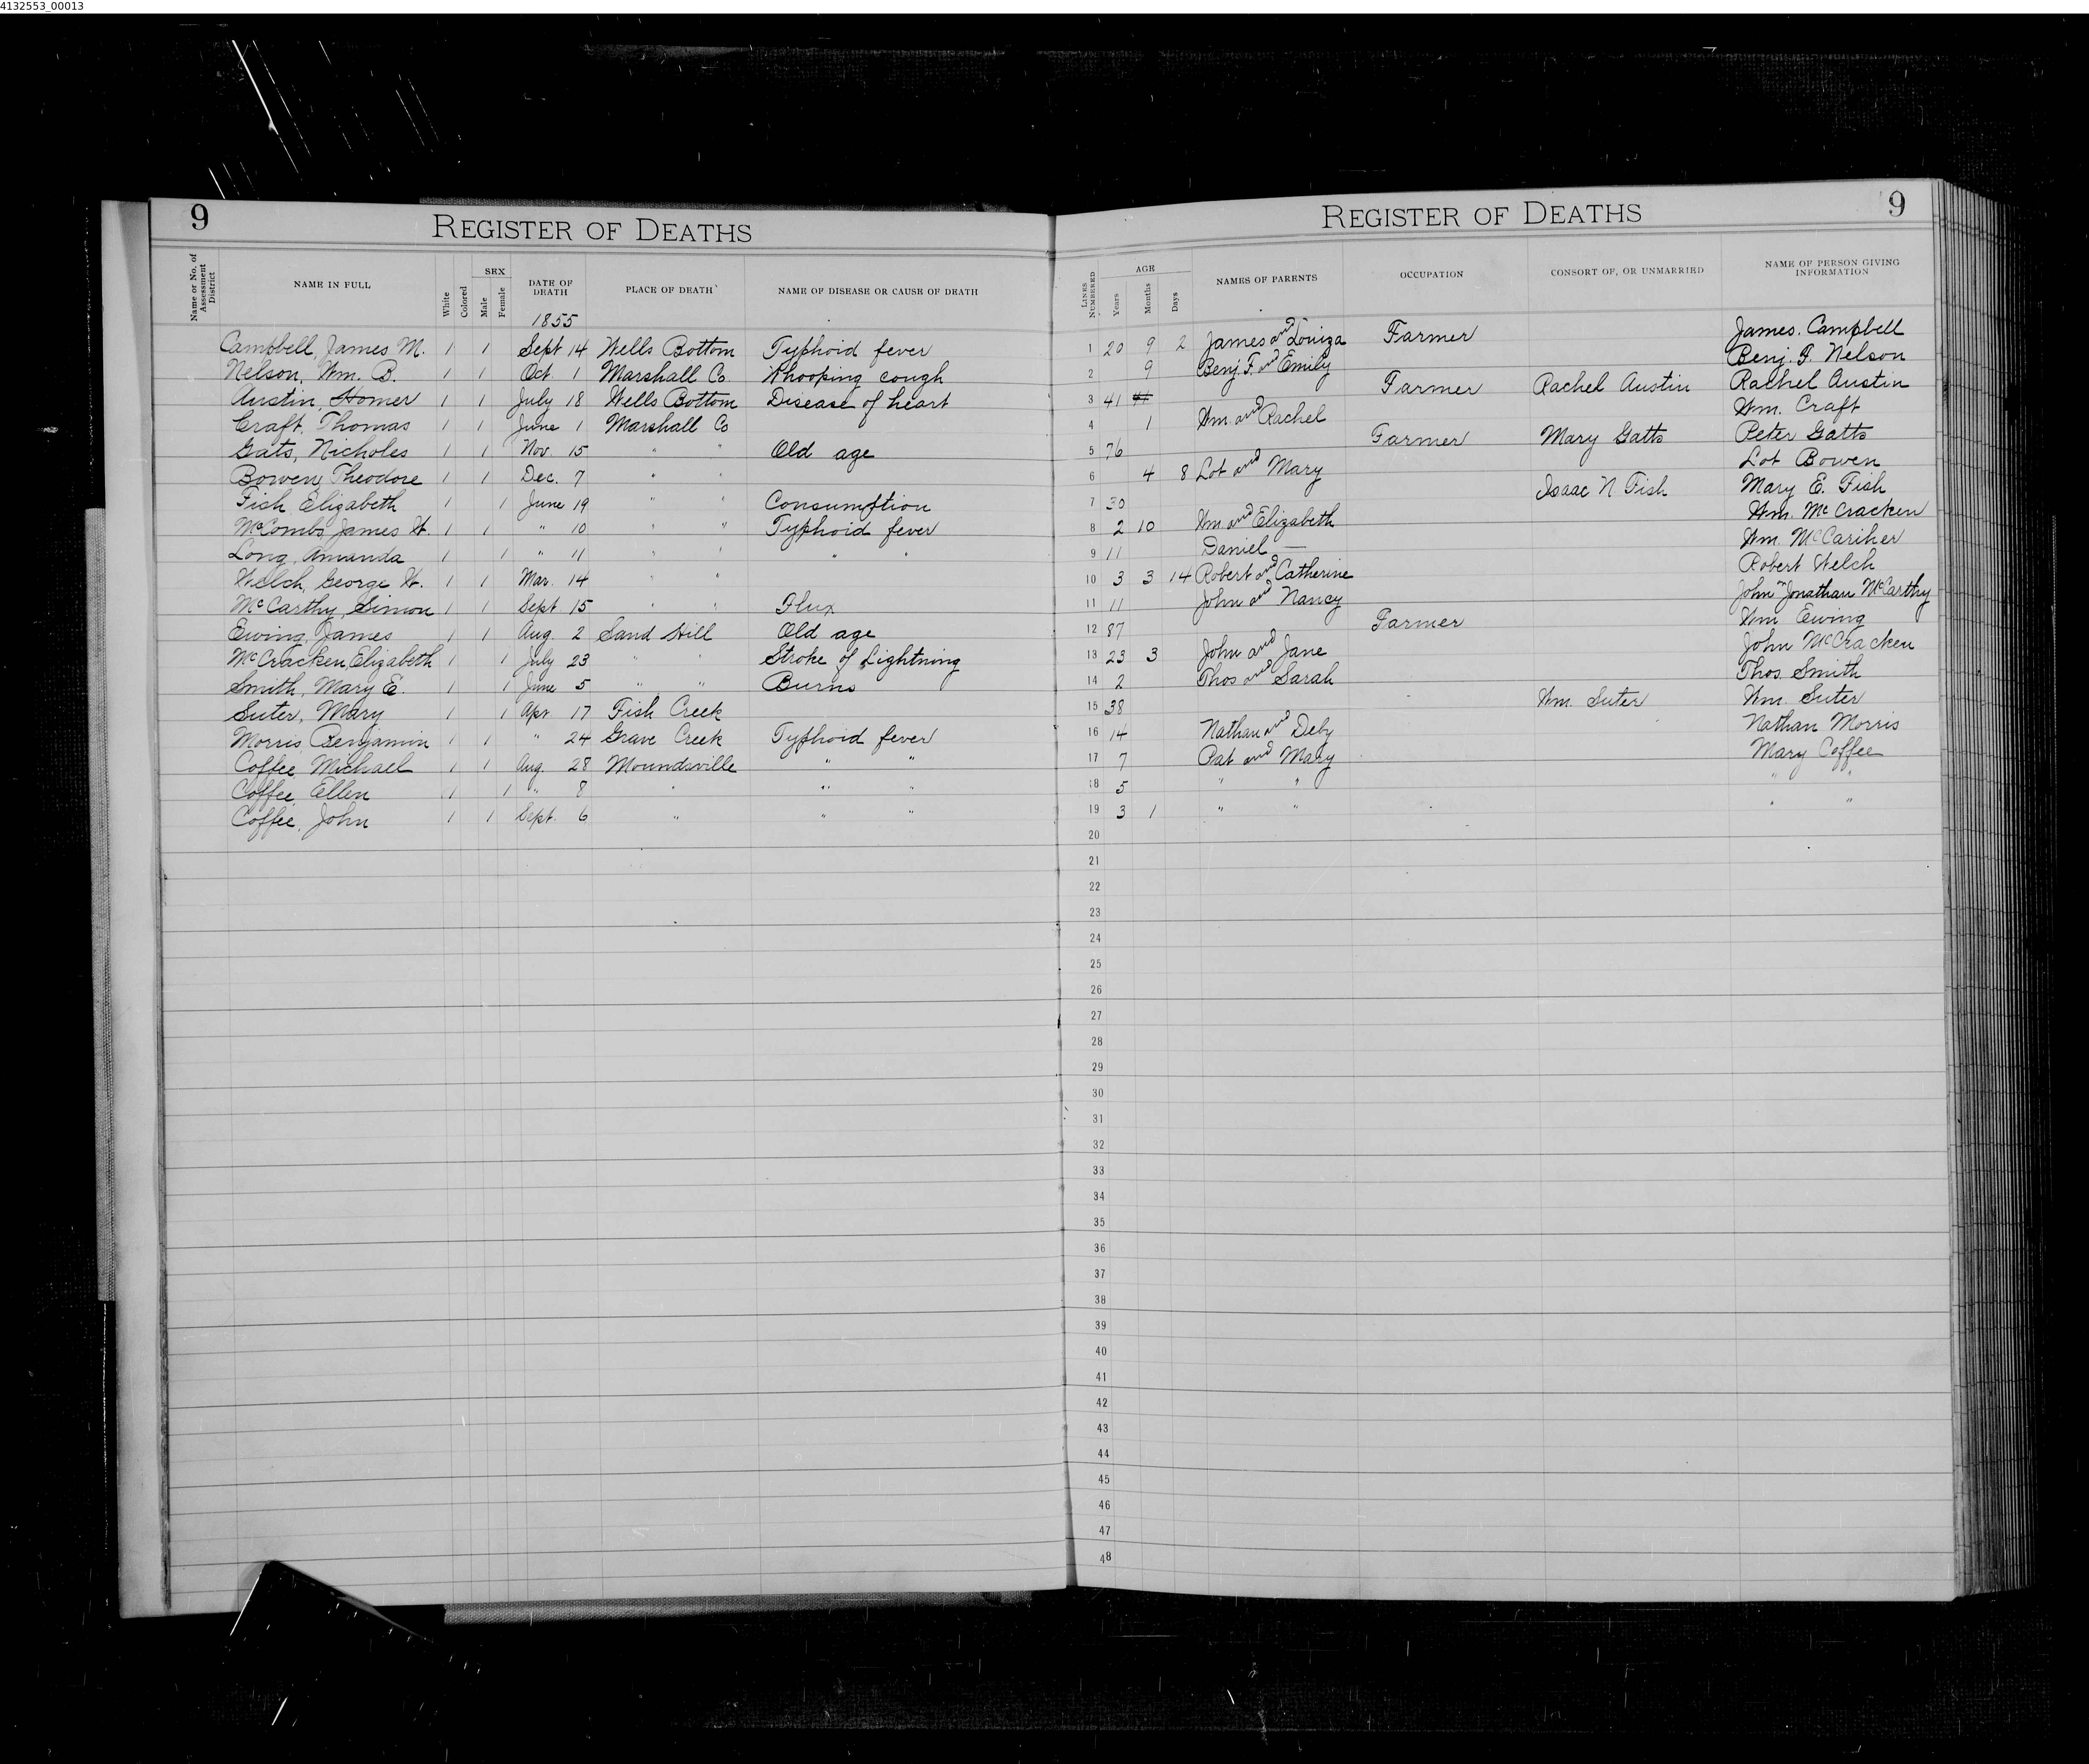 4132553_00013
9 REGISTER OF DEATHS
Name or No. of Assessment District NAME IN FULL White Colored SEX Male Female DATE OF DEATH PLACE OF DEATH NAME OF DISEASE OR CAUSE OF DEATH
1855
Campbell, James M. 1 1 Sept 14 Wells Bottom Typhoid fever
Nelson, Wm. B. 1 1 Oct. 1 Marshall Co. Whooping cough
Austin, Homer 1 1 July 18 Wells Bottom Disease of heart
Craft, Thomas 1 1 June 1 Marshall Co
Gats, Nicholes 1 1 Nov. 15 " " Old age
Bowen, Theodore 1 1 Dec. 7 " "
Fish Elizabeth 1 1 June 19 " " Consumption
McCombs, James W. 1 1 " 10 " " Typhoid fever
Long, Amanda 1 1 " 11 " " " "
Welch, George W. 1 1 Mar. 14 " "
McCarthy, Simon 1 1 Sept. 15 " " Flux
Ewing, James 1 1 Aug. 2 Sand Hill Old age
McCracken, Elizabeth 1 1 July 23 " " Stroke of Lightning
Smith, Mary E. 1 1 June 5 " " Burns
Suter, Mary 1 1 Apr 17 Fish Creek
Morris, Benjamin 1 1 " 24 Grave Creek Typhoid fever
Coffee, Michael 1 1 Aug. 28 Moundsville " "
Coffee, Ellen 1 1 " 8 " " "
Coffee, John 1 1 Sept. 6 " " "
REGISTER OF DEATHS 9
LINES NUMBERED AGE Years Months Days NAMES OF PARENTS OCCUPATION CONSORT OF, OR UNMARRIED NAME OF PERSON GIVING INFORMATION
1 20 9 2 James and Louiza Farmer James. Campbell
2 9 Benj. F. and Emily Benj. F. Nelson
3 41 Farmer Rachel Austin Rachel Austin
4 1 Wm. and Rachel Wm. Craft
5 76 Farmer Mary Gatts Peter Gatts
6 4 8 Lot and Mary Lot Bowen
7 30 Isaac N Fish Mary E. Fish
8 2 10 Wm and Elizabeth Wm. McCracken
9 11 Daniel — Wm. McCariher
10 3 3 14 Robert and Catherine Robert Welch
11 11 John and Nancy John Jonathan McCarthy
12 87 Farmer Wm Ewing
13 23 3 John and Jane John McCracken
14 2 Thos and Sarah Thos. Smith
15 38 Wm. Suter Wm. Suter
16 14 Nathan and Deby Nathan Morris
17 7 Pat and Mary Mary Coffee
18 5 " " " "
19 3 1 " " " "
20
21
22
23
24
25
26
27
28
29
30
31
32
33
34
35
36
37
38
39
40
41
42
43
44
45
46
47
48